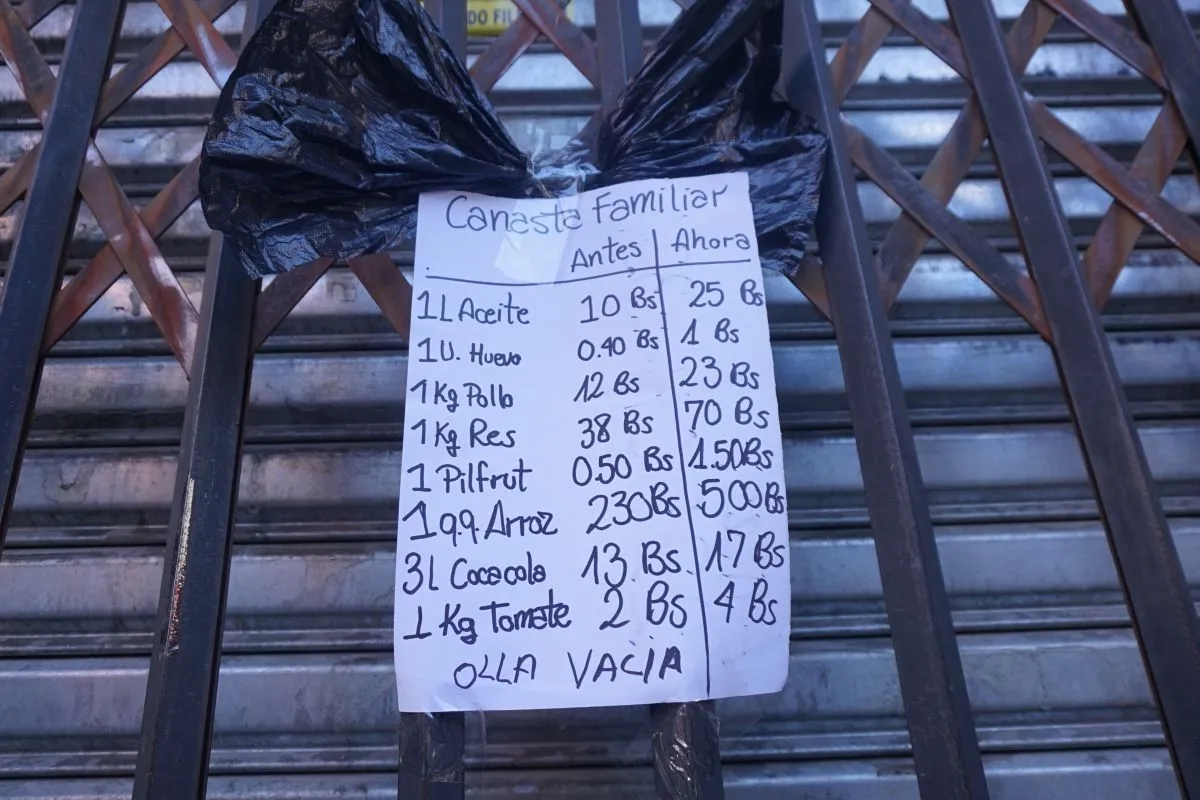 DO FIL
Canasta Familiar
Antes Ahora
1L Aceite 10 Bs 25 Bs
1U. Huevo 0.40 Bs 1 Bs
1Kg Pollo 12 Bs 23 Bs
1Kg Res 38 Bs 70 Bs
1 Pilfrut 0.50 Bs 1.50Bs
1qq. Arroz 230Bs 500Bs
3L Cocacola 13 Bs. 17 Bs
1 Kg Tomate 2 Bs 4 Bs
OLLA VACIA